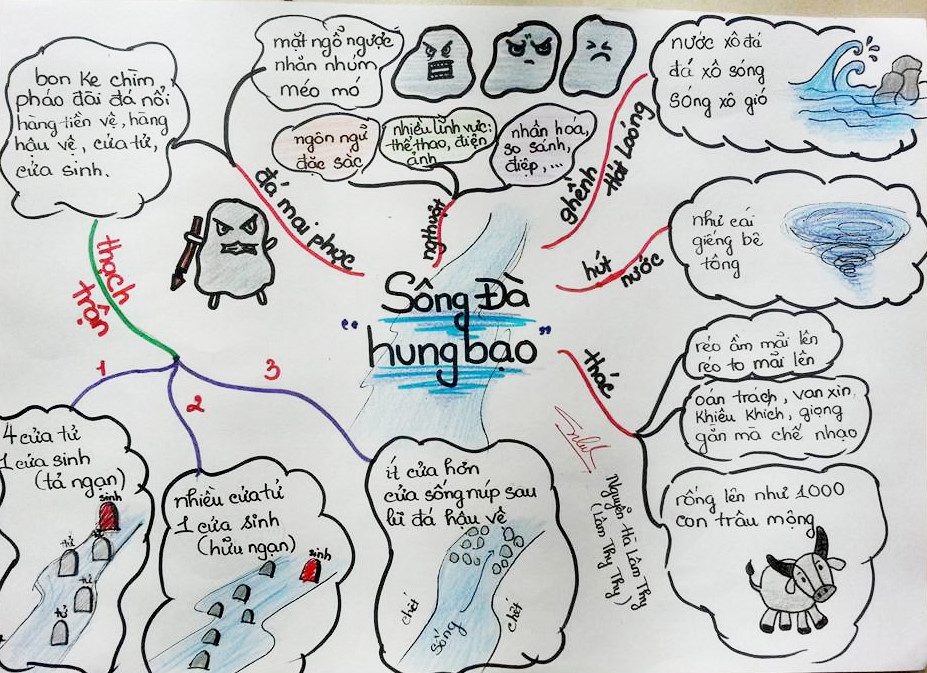 Sông Đà
"hung bạo"
đá mai phục
mặt ngổ ngược
nhăn nhúm
méo mó
bon ke chìm,
pháo đài đá nổi
hàng tiền vệ, hàng
hậu vệ, cửa tử,
cửa sinh.
thạch
trận
1
4 cửa tử
1 cửa sinh
(tả ngạn)
sinh
tử
tử
tử
2
nhiều cửa tử
1 cửa sinh
(hữu ngạn)
sinh
3
ít cửa hơn
cửa sống núp sau
lũ đá hậu vệ
chết
sống
chết
ng thuật
ngôn ngữ
đặc sắc
nhiều lĩnh vực:
thể thao, điện
ảnh
nhân hóa,
so sánh,
điệp,...
ghềnh
Hát Loóng
nước xô đá
đá xô sóng
sóng xô gió
hút
nước
như cái
giếng bê
tông
thác
réo ầm mãi lên
réo to mãi lên
oán trách, van xin
khiêu khích, giọng
gằn mà chế nhạo
rống lên như 1000
con trâu mộng
Nguyễn Hà Lâm Thy
(Lâm Thy Thy)